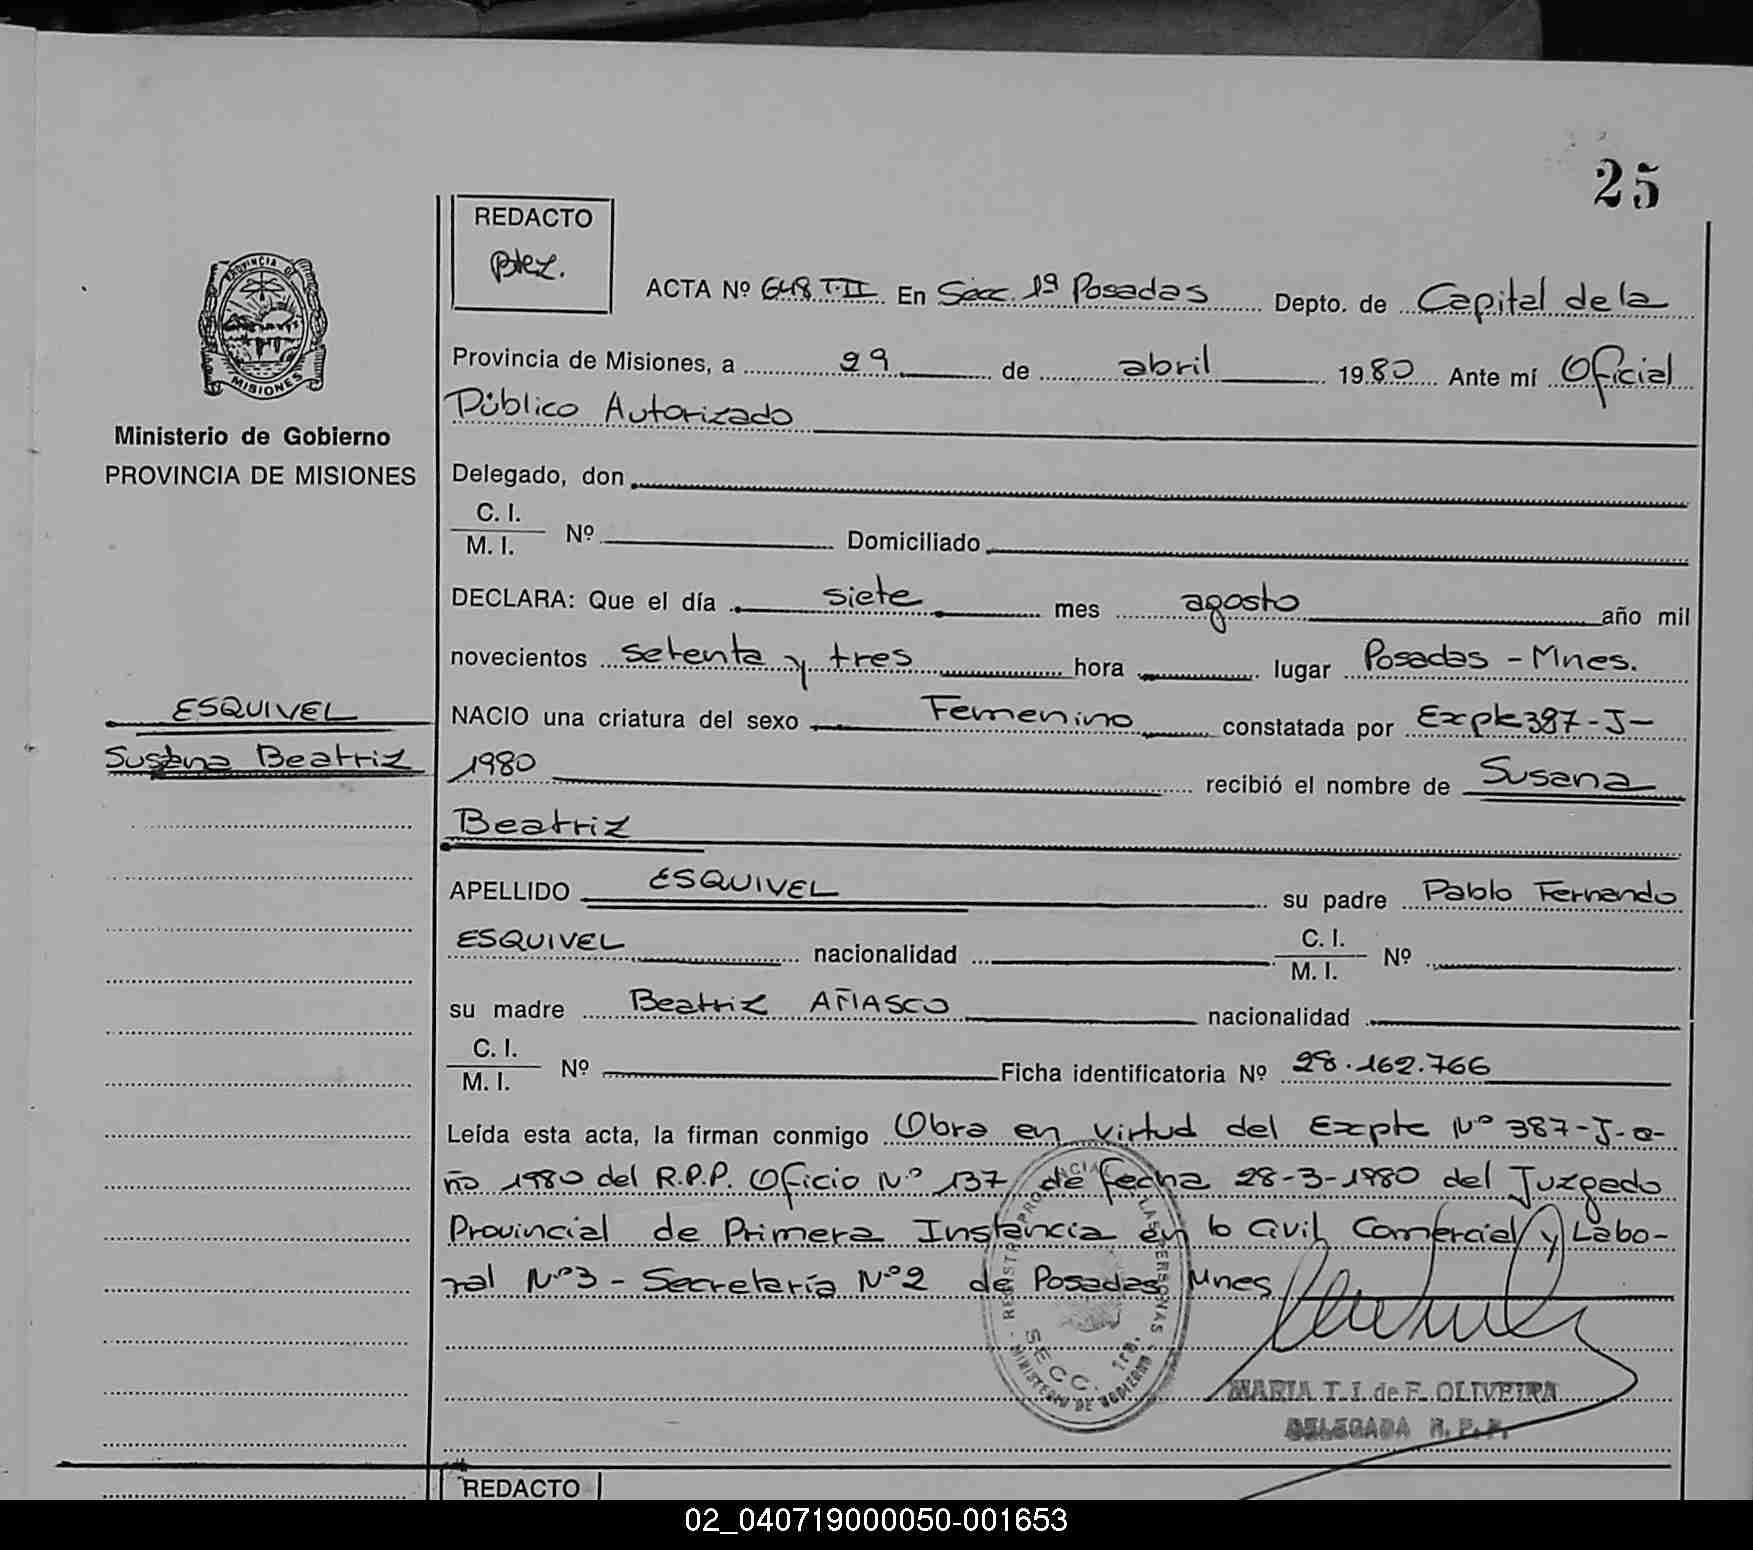 25
REDACTO
PROVINCIA DE
MISIONES
ACTA Nº 648 T.II En Secc. 1ª Posadas Depto. de Capital de la
Provincia de Misiones, a 29 de abril 1980 Ante mí Oficial
Público Autorizado
Ministerio de Gobierno
PROVINCIA DE MISIONES
Delegado, don
C. I.
M. I.
Nº Domiciliado
DECLARA: Que el día siete mes agosto año mil
novecientos setenta y tres hora lugar Posadas - Mnes.
ESQUIVEL
Susana Beatriz
NACIO una criatura del sexo Femenino constatada por Expte 387-J-
1980 recibió el nombre de Susana
Beatriz
APELLIDO ESQUIVEL su padre Pablo Fernando
ESQUIVEL nacionalidad C. I.
M. I. Nº
su madre Beatriz AÑASCO nacionalidad
C. I.
M. I.
Nº Ficha identificatoria Nº 28.162.766
Leída esta acta, la firman conmigo Obra en virtud del Expte Nº 387-J-a-
ño 1980 del R.P.P. Oficio Nº 137 de fecha 28-3-1980 del Juzgado
Provincial de Primera Instancia en lo Civil Comercial y Labo-
ral Nº3 - Secretaría Nº2 de Posadas Mnes
REGISTRO PROVINCIAL LAS PERSONAS
SECC. 1ra.
MINISTERIO DE GOBIERNO
MARIA T. I. de F. OLIVEIRA
DELEGADA R. P. P.
REDACTO
02_040719000050-001653